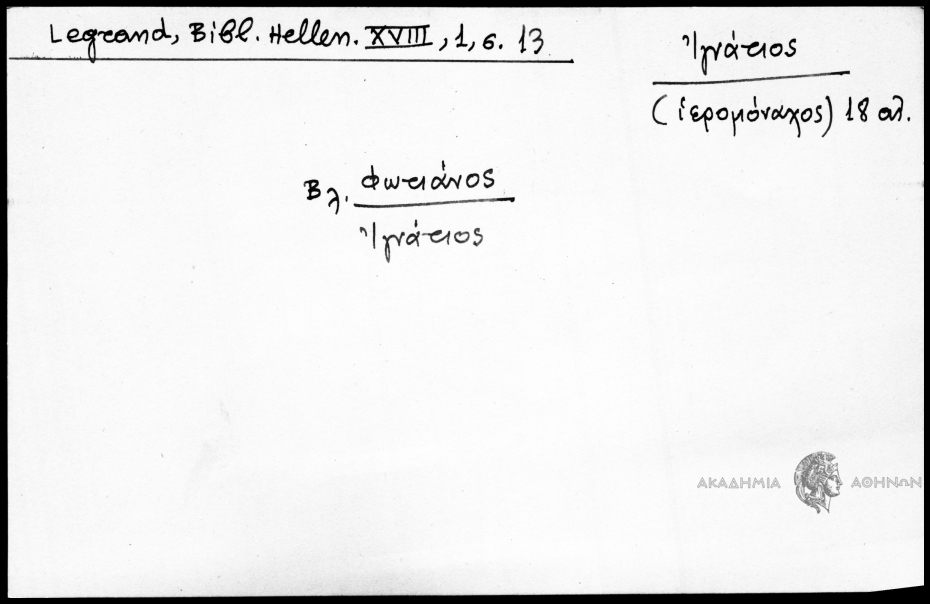 Legrand, Βιβλ. Hellen. XVIII, 1, σ. 13
Ἰγνάτιος
(ἱερομόναχος) 18 αἰ.
Βλ. Φωτιάνος
Ἰγνάτιος
ΑΚΑΔΗΜΙΑ ΑΘΗΝΩΝ